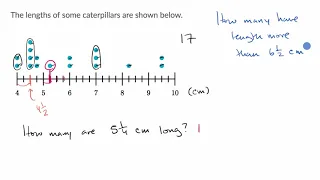 The lengths of some caterpillars are shown below.
17
How many have
length more
than 6 1/2 cm
4 5 6 7 8 9 10 (cm)
4 1/2
How many are 5 1/4 cm long? 1